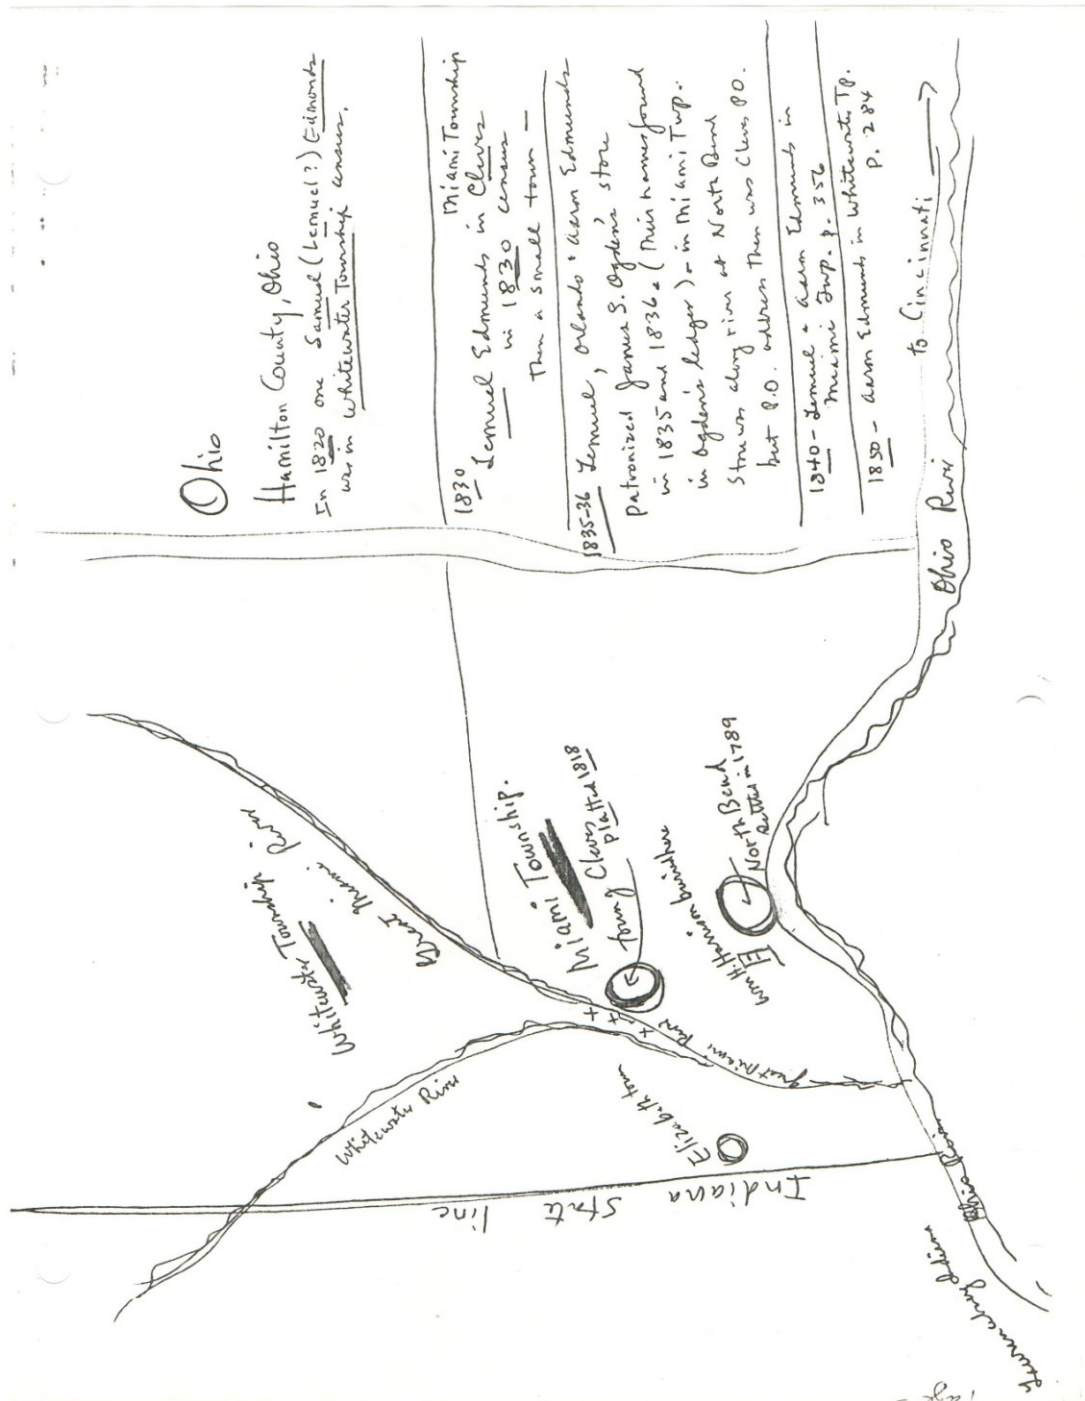 Ohio
Hamilton County, Ohio
In 1820 one Samuel (Lemuel?) Edmonds
was in Whitewater Township census.
Miami Township
1830
Lemuel Edmunds in Cleves
in 1830 census
then a small town -
1835-36 Lemuel, Orlando + Aaron Edmunds
patronized James S. Ogden's store
in 1835 and 1836. (Their names found
in Ogden's ledger) - in Miami Twp.
Store was along river at North Bend
but P.O. address then was Cleves P.O.
1840 - Lemuel + Aaron Edmunds in
Miami Twp. p. 356
1850 - Aaron Edmunds in Whitewater Tp.
P. 284
to Cincinnati
Ohio River
Whitewater Township
Great Miami River
Miami Township.
Cleves
platted 1818
Wm H. Harrison buried here
North Bend
settled in 1789
Whitewater River
Great Miami River
Elizabethtown
Indiana State line
Ohio River
Lawrenceburg Indiana
Page